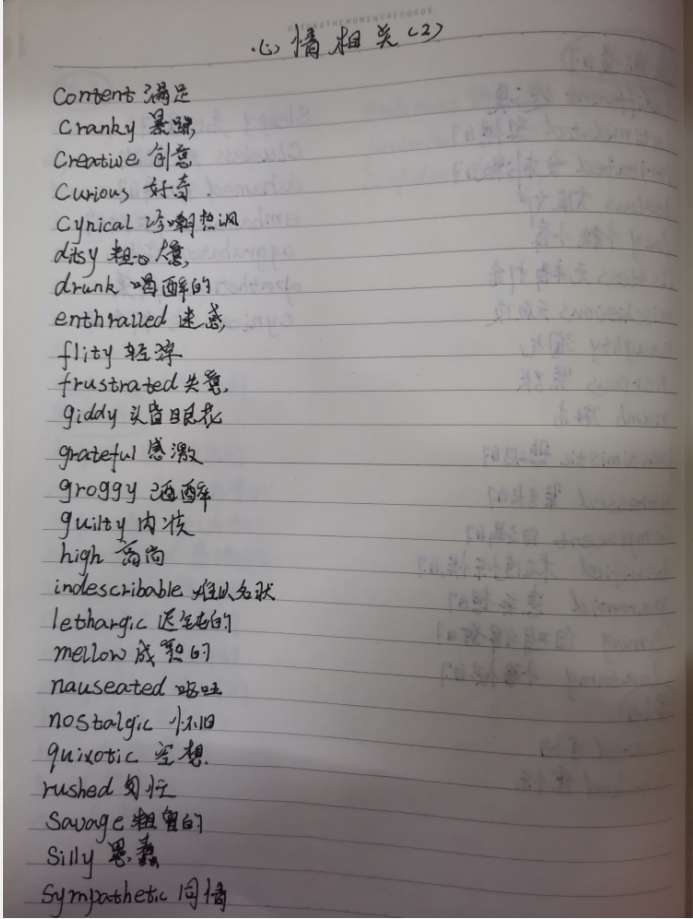 心情相关(2)
Content 满足
Cranky 暴躁
Creative 创意
Curious 好奇
Cynical 冷嘲热讽
ditsy 粗心大意
drunk 喝醉的
enthralled 迷惑
flity 轻浮
frustrated 失意
giddy 头昏眼花
grateful 感激
groggy 酒醉
guilty 内疚
high 高尚
indescribable 难以名状
lethargic 迟钝的
mellow 成熟的
nauseated 呕吐
nostalgic 怀旧
quixotic 空想
rushed 匆忙
Savage 粗鲁的
Silly 愚蠢
Sympathetic 同情